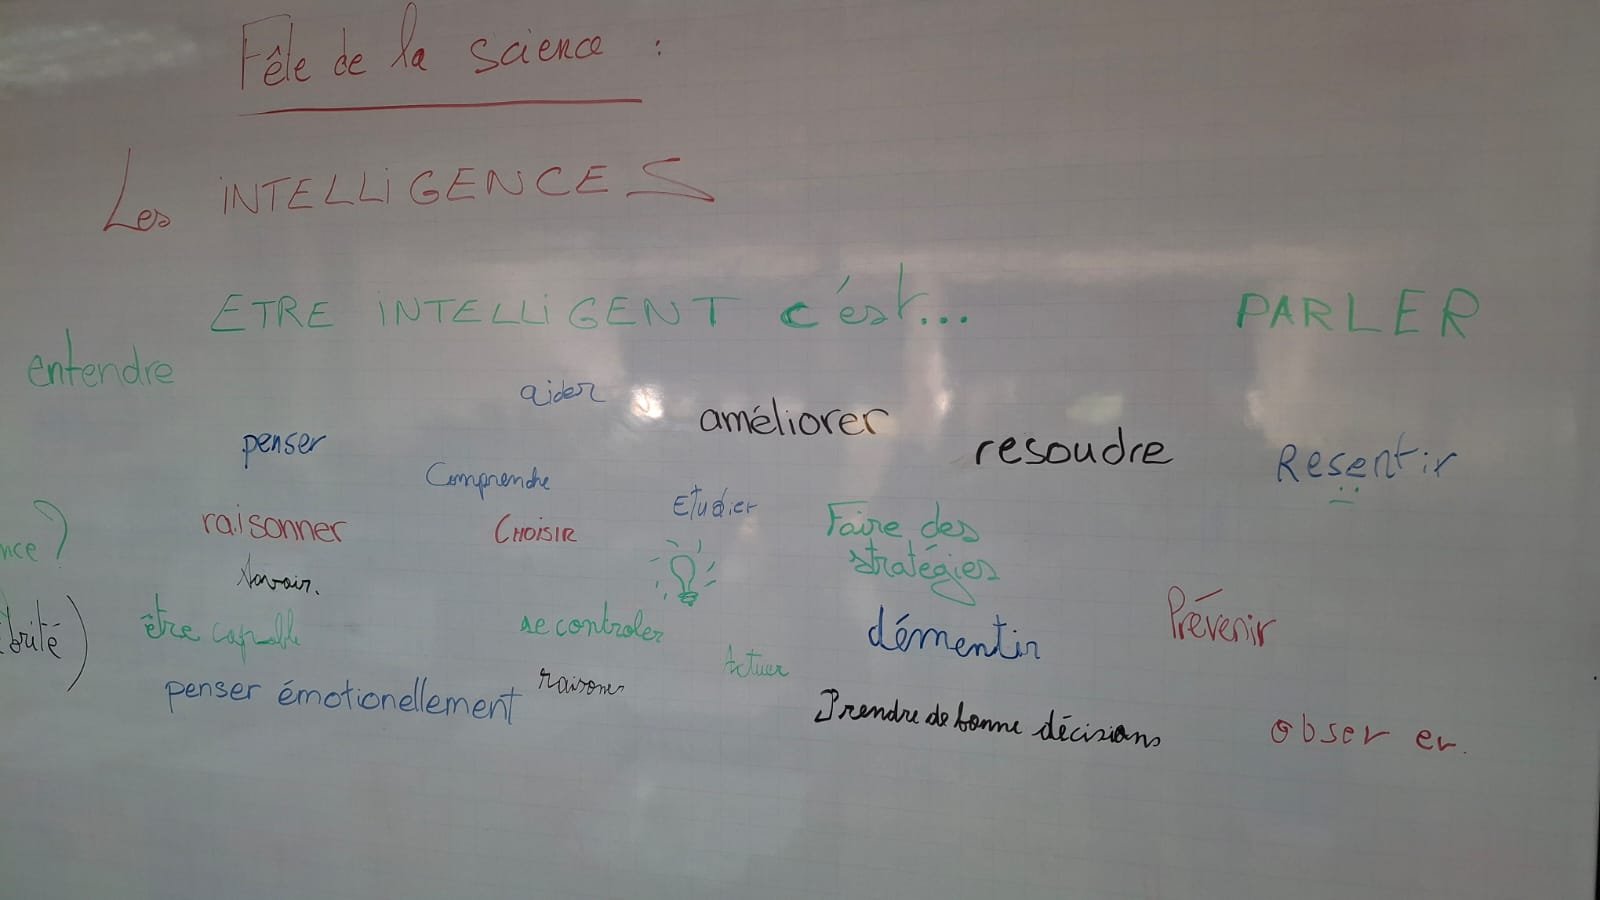 Fête de la science :
Les INTELLIGENCES
ETRE INTELLIGENT c'est...
PARLER
entendre
aider
améliorer
penser
resoudre
Resentir
Comprendre
Etudier
raisonner
CHOISIR
Faire des
stratégies
nce ?
savoir.
être capable
se controler
démentir
Prévenir
brité)
Actuer
penser émotionellement
raisoner
Prendre de bonne décisions
obser er.